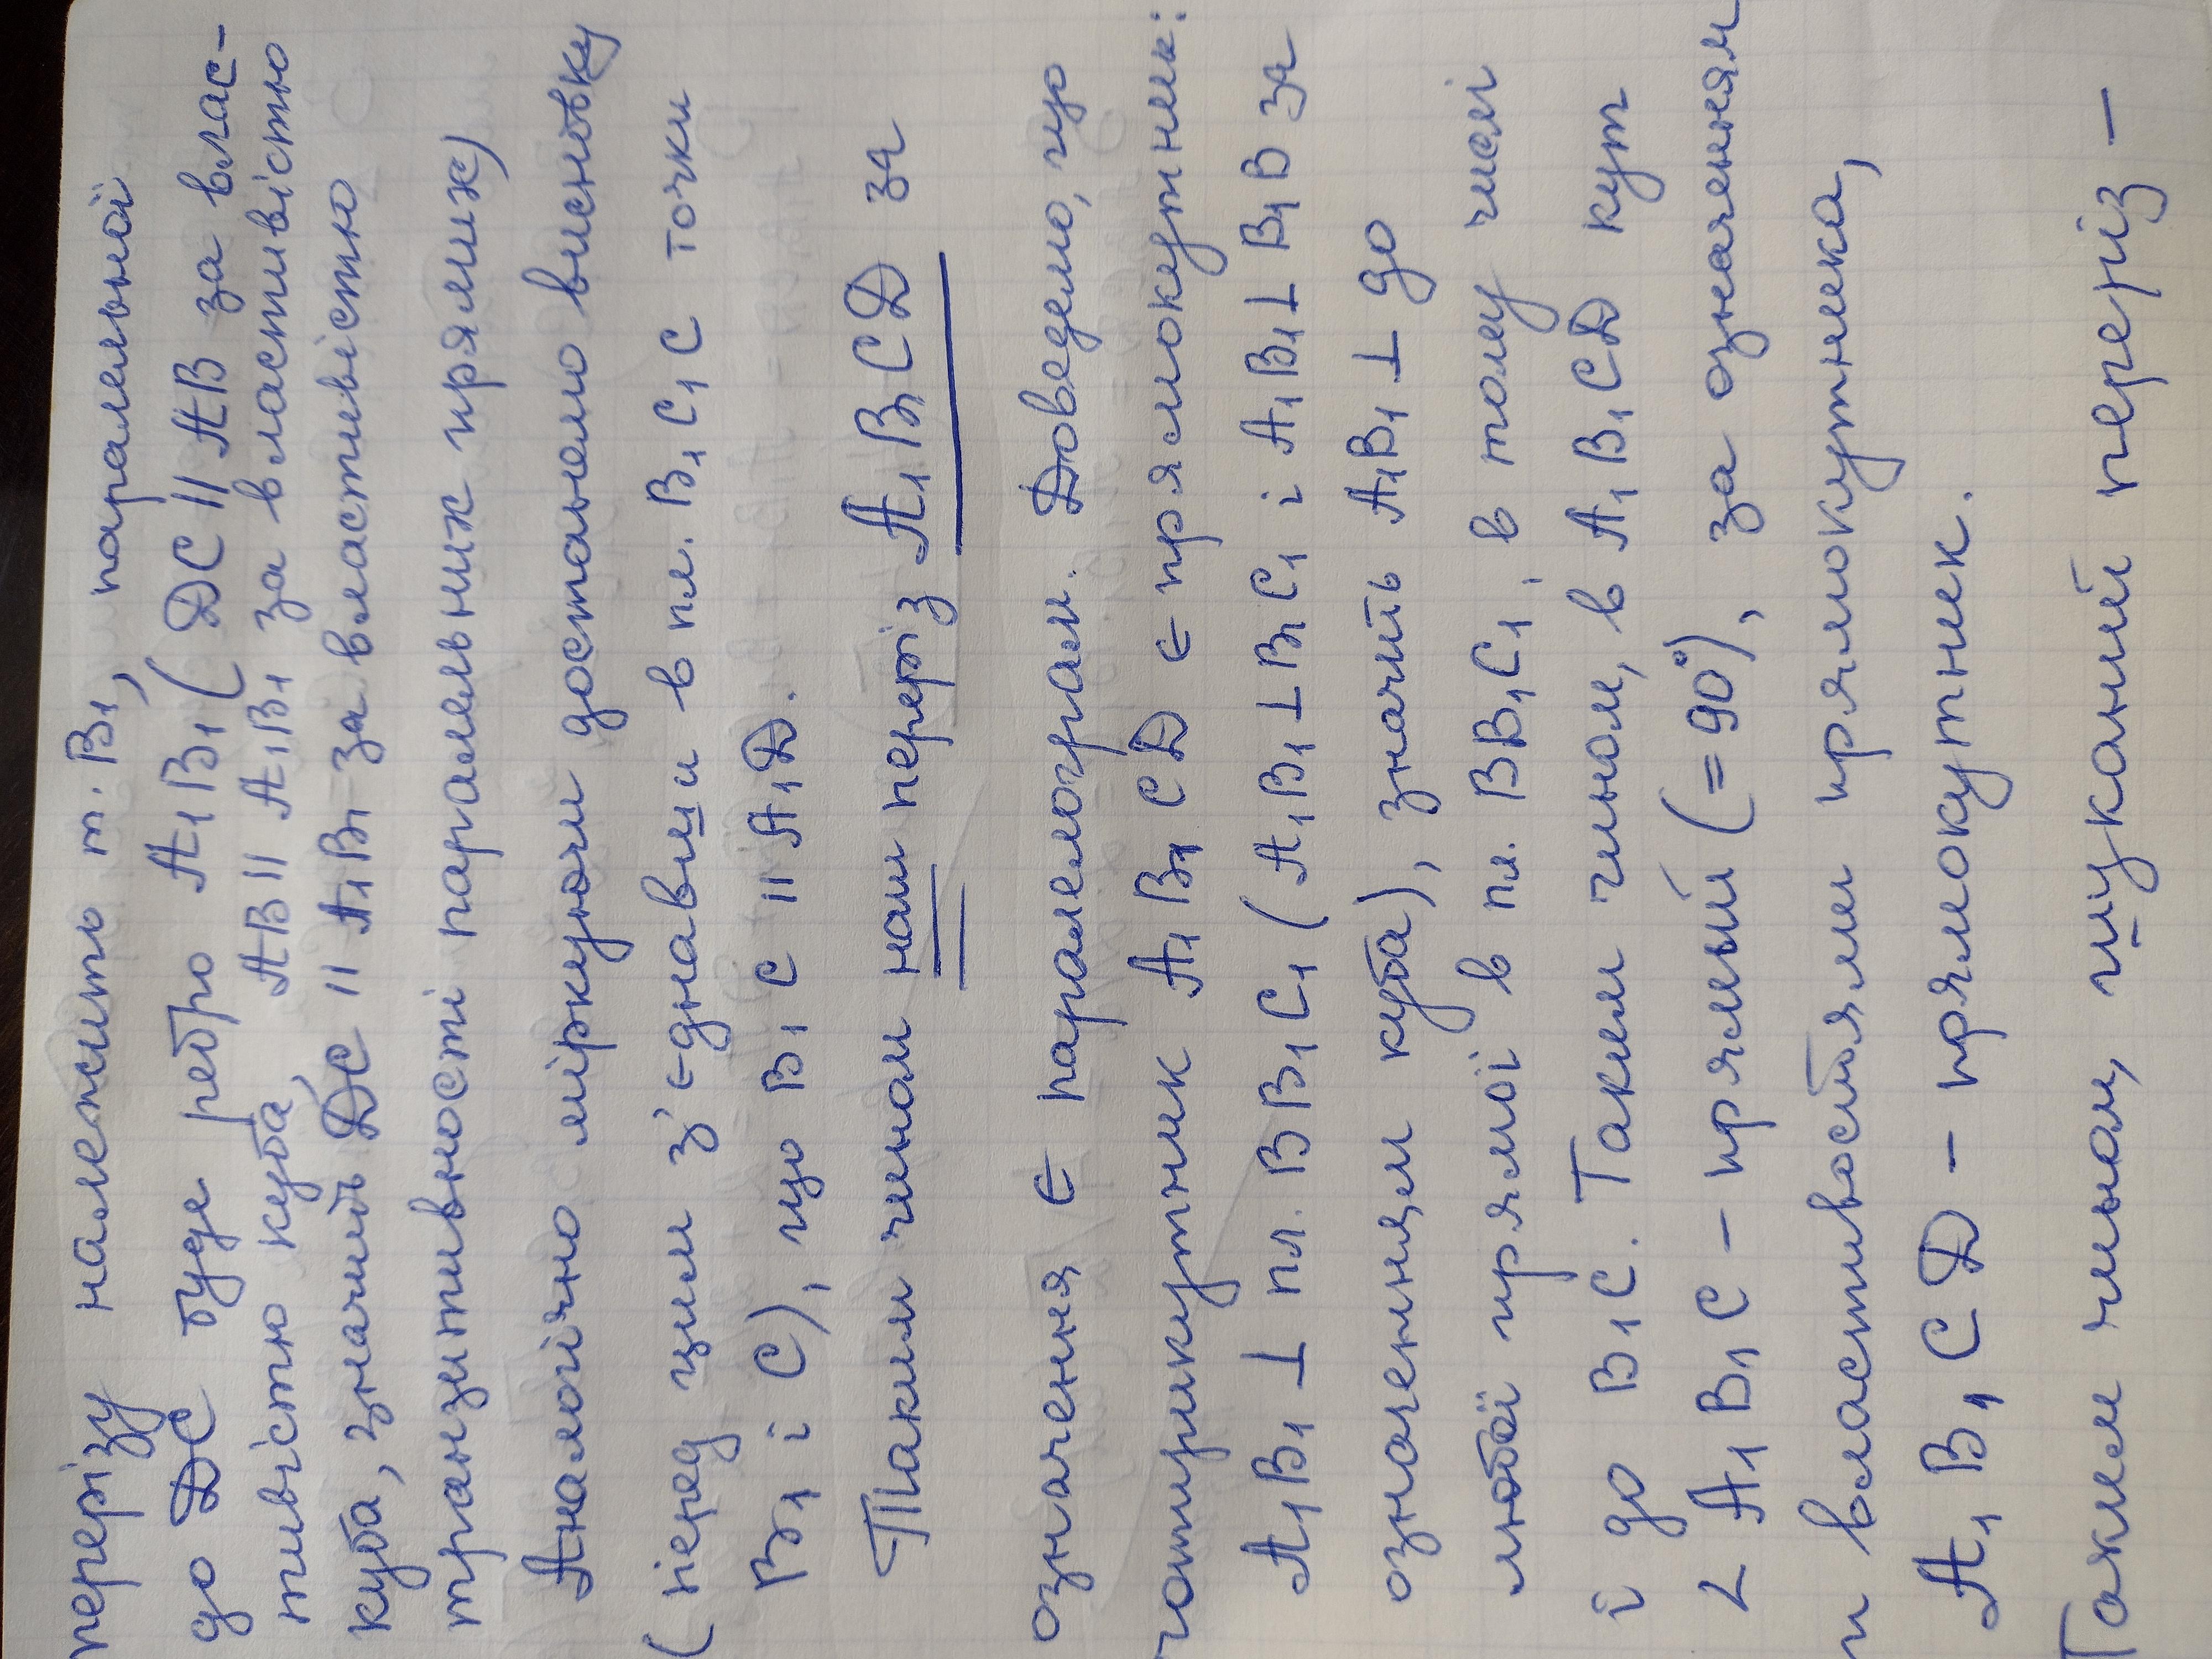 перерізу належить т. В1, паралельної
до DC буде ребро A1B1 (DC || AB за влас-
тивістю куба, AB || A1B1 за властивістю
куба, значить DC || A1B1 за властивістю
транзитивності паралельних прямих)
Аналогічно міркуючи достаньємо висновку
(перед цим з'єднавши в пл. B1C1C точки
B1 і C), що B1C || A1D.
Таким чином наш переріз A1B1CD за
означення є паралелограм. Доведемо, що
чотирикутник A1B1CD є прямокутник:
A1B1 ⊥ пл. BB1C1 (A1B1 ⊥ B1C1 і A1B1 ⊥ B1B за
означенням куба), значить A1B1 ⊥ до
любої прямої в пл. BB1C1, в тому числі
і до B1C. Таким чином, в A1B1CD кут
∠ A1B1C – прямий (=90°), за означенням
и властивостями прямокутника,
A1B1CD – прямокутник.
Таким чином, шуканий переріз –